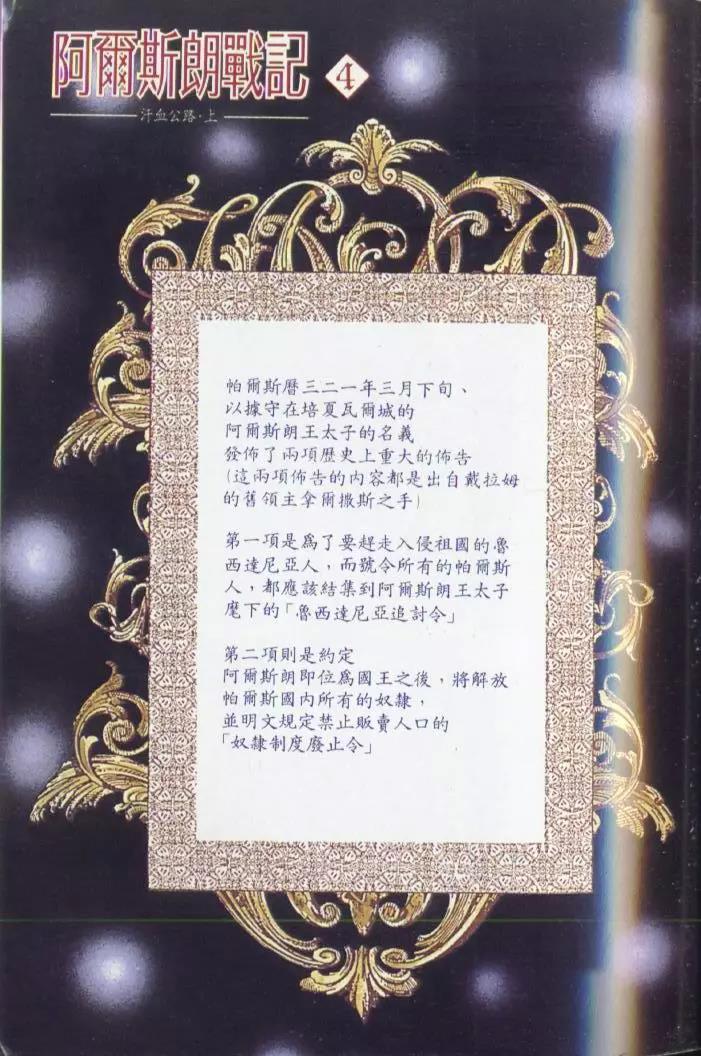 阿爾斯朗戰記 4
汗血公路·上
帕爾斯曆三二一年三月下旬、
以據守在培夏瓦爾城的
阿爾斯朗王太子的名義
發佈了兩項歷史上重大的佈告
(這兩項佈告的內容都是出自戴拉姆
的舊領主拿爾撒斯之手)
第一項是爲了要趕走入侵祖國的魯
西達尼亞人，而號令所有的帕爾斯
人，都應該結集到阿爾斯朗王太子
麾下的「魯西達尼亞追討令」
第二項則是約定
阿爾斯朗即位爲國王之後，將解放
帕爾斯國內所有的奴隸，
並明文規定禁止販賣人口的
「奴隸制度廢止令」